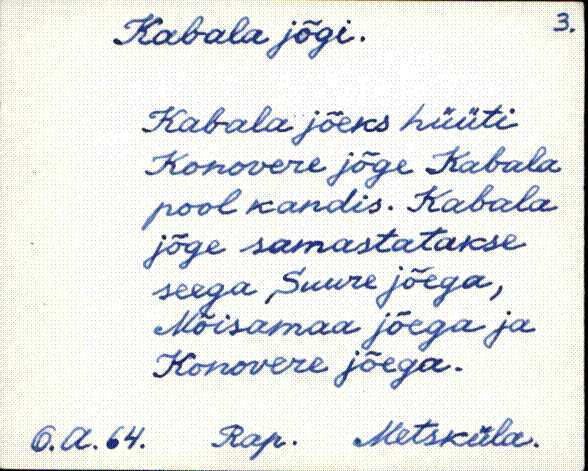 Kabala jõgi.
3.
Kabala jõeks hüüti
Konovere jõge Kabala
pool kandis. Kabala
jõge samastatakse
seega Suure jõega,
Mõisamaa jõega ja
Konovere jõega.
O.A.64. Rap. Metsküla.